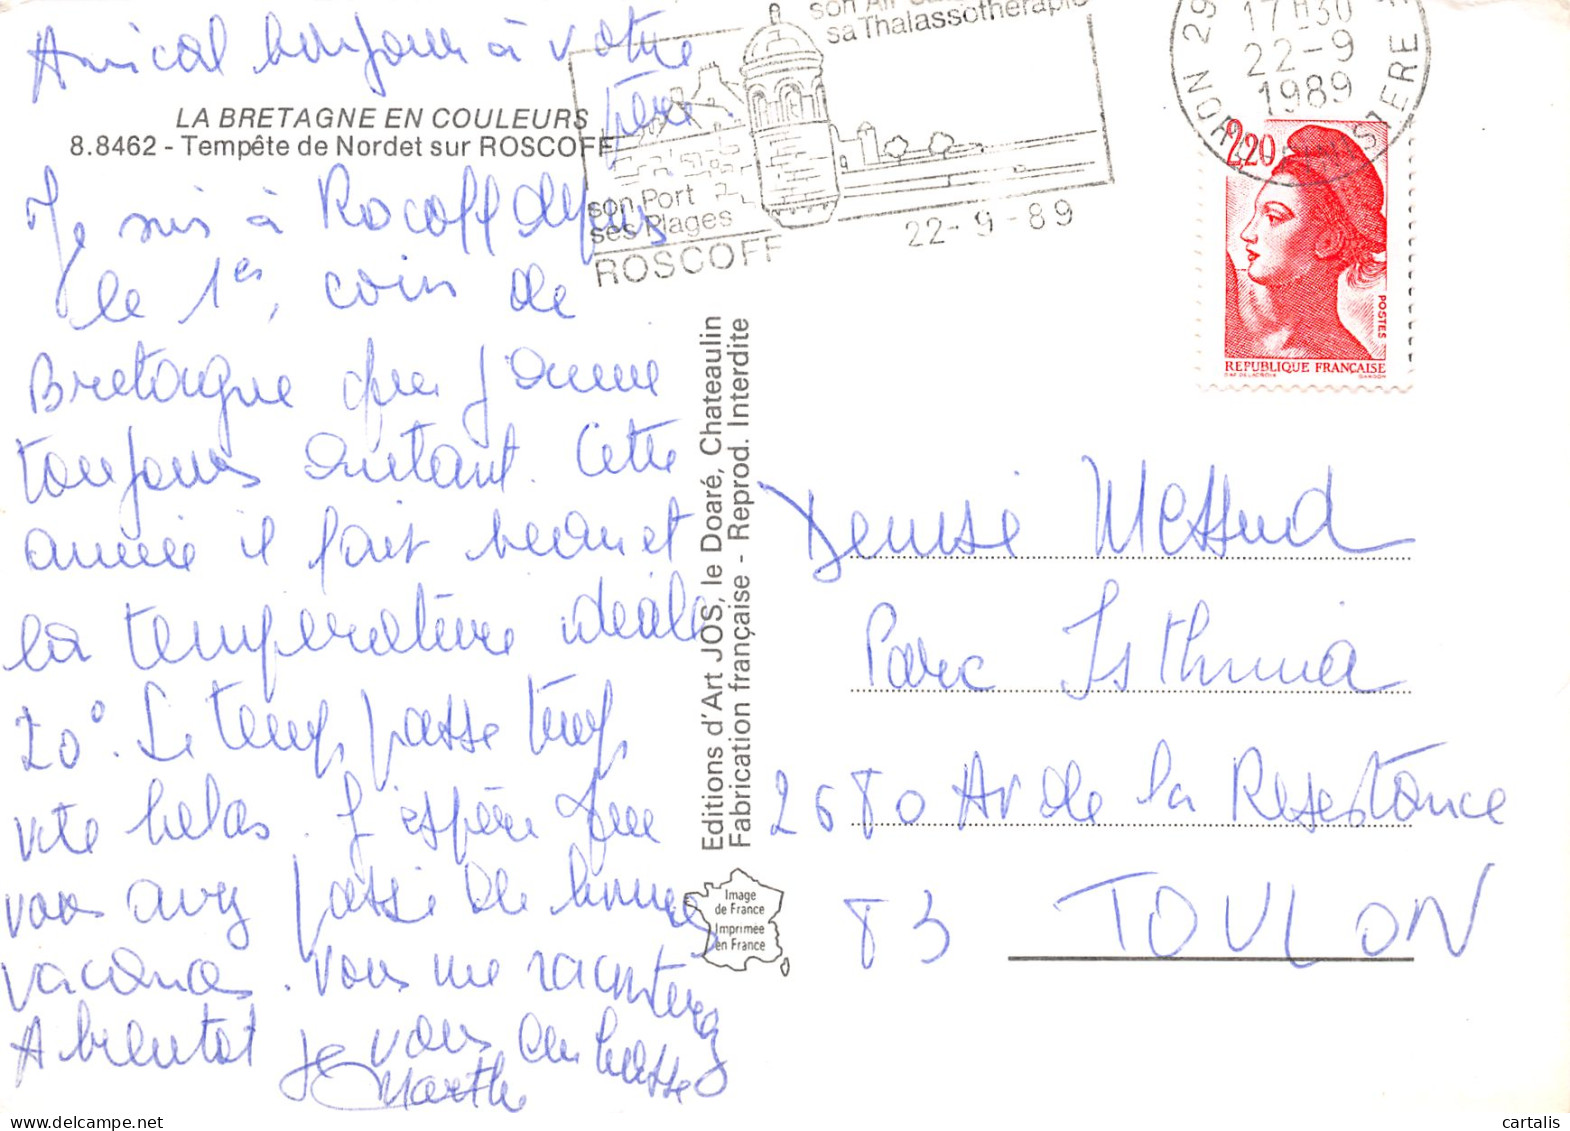 Amical bonjour à votre
père.
LA BRETAGNE EN COULEURS
8.8462 - Tempête de Nordet sur ROSCOFF
Je suis à Rocoff depuis
le 1er, coin de
Bretagne que j'aime
toujours autant. Cette
année il fait beau et
la température idéale
20°. Le temps passe trop
vite helas. J'espère que
vous avez passé de bonnes
vacances. Vous me raconterez
A bientot je vous embrasse
Marthe
Editions d'Art JOS, le Doaré, Chateaulin
Fabrication française - Reprod. Interdite
Image
de France
Imprimée
en France
son Air
sa Thalassothérapie
son Port
ses Plages
ROSCOFF
22-9-89
29
17H30
22-9
1989
2,20
POSTES
REPUBLIQUE FRANÇAISE
D'AP. DELACROIX
GANDON
Denise Messud
Parc Isthmia
2680 Av de la Resistance
83 TOULON
cartalis
delcampe.net